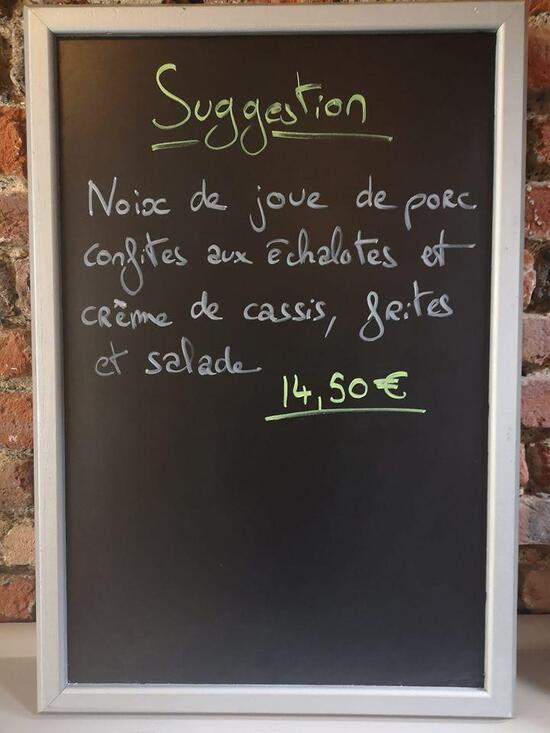 Suggestion
Noix de joue de porc
confites aux échalotes et
crème de cassis, frites
et salade
14,50€